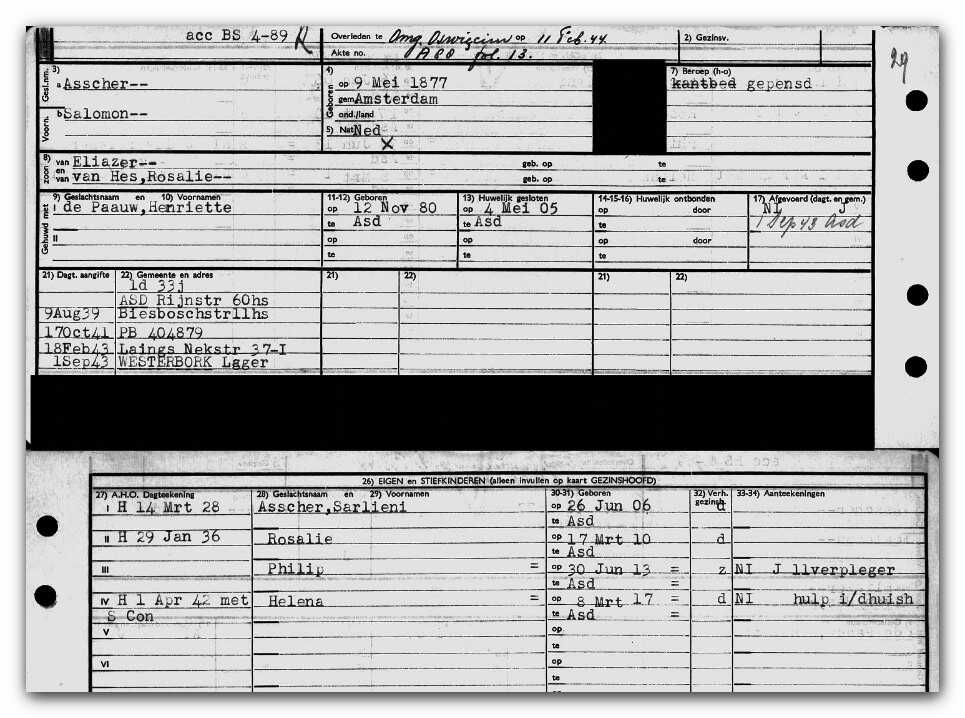 acc BS 4-89
Overleden te Omg Oswiecim op 11 Feb. 44.
2) Gezinsv.
Akte no. A 80 fol. 13.
29
Gesl.nm.
3)
a Asscher--
4)
Geboren
op 9 Mei 1877
7) Beroep (h-o)
kantbed gepensd
gem Amsterdam
Voorn.
b Salomon--
ond./land
5) Nat Ned
X
8)
zoon
van Eliazer--
geb. op
te
en
van van Hes,Rosalie--
geb. op
te
Gehuwd met
9) Geslachtsnaam en 10) Voornamen
11-12) Geboren
13) Huwelijk gesloten
14-15-16) Huwelijk ontbonden
17) Afgevoerd (dagt. en gem.)
I de Paauw,Henriette
op 12 Nov 80
op 4 Mei 05
op door
NI J
te Asd
te Asd
te
1 Sep 43 Asd
II
op
op
op door
te
te
te
21) Dagt. aangifte
22) Gemeente en adres
21)
22)
21)
22)
ld 33j
ASD Rijnstr 60hs
9Aug39 Biesboschstrllhs
17Oct41 PB 404879
18Feb43 Laings Nekstr 37-I
1Sep43 WESTERBORK Lager
26) EIGEN en STIEFKINDEREN (alleen invullen op kaart GEZINSHOOFD)
27) A.H.O. Dagteekening
28) Geslachtsnaam en 29) Voornamen
30-31) Geboren
32) Verh. gezinsh.
33-34) Aanteekeningen
I H 14 Mrt 28 Asscher,Sarlieni op 26 Jun 06 d
te Asd
II H 29 Jan 36 Rosalie op 17 Mrt 10 d
te Asd
III Philip = op 30 Jun 13 = z NI J llverpleger
te Asd =
IV H 1 Apr 42 met Helena = op 8 Mrt 17 = d NI hulp i/dhuish
S Con te Asd =
V
op
te
VI
op
te